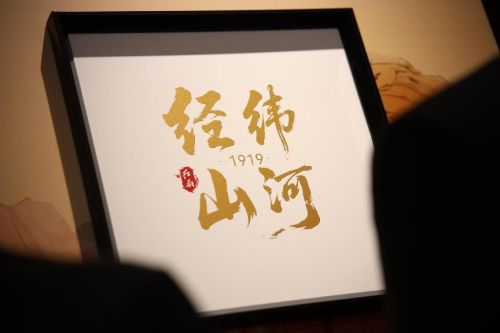 经纬
1919
山河